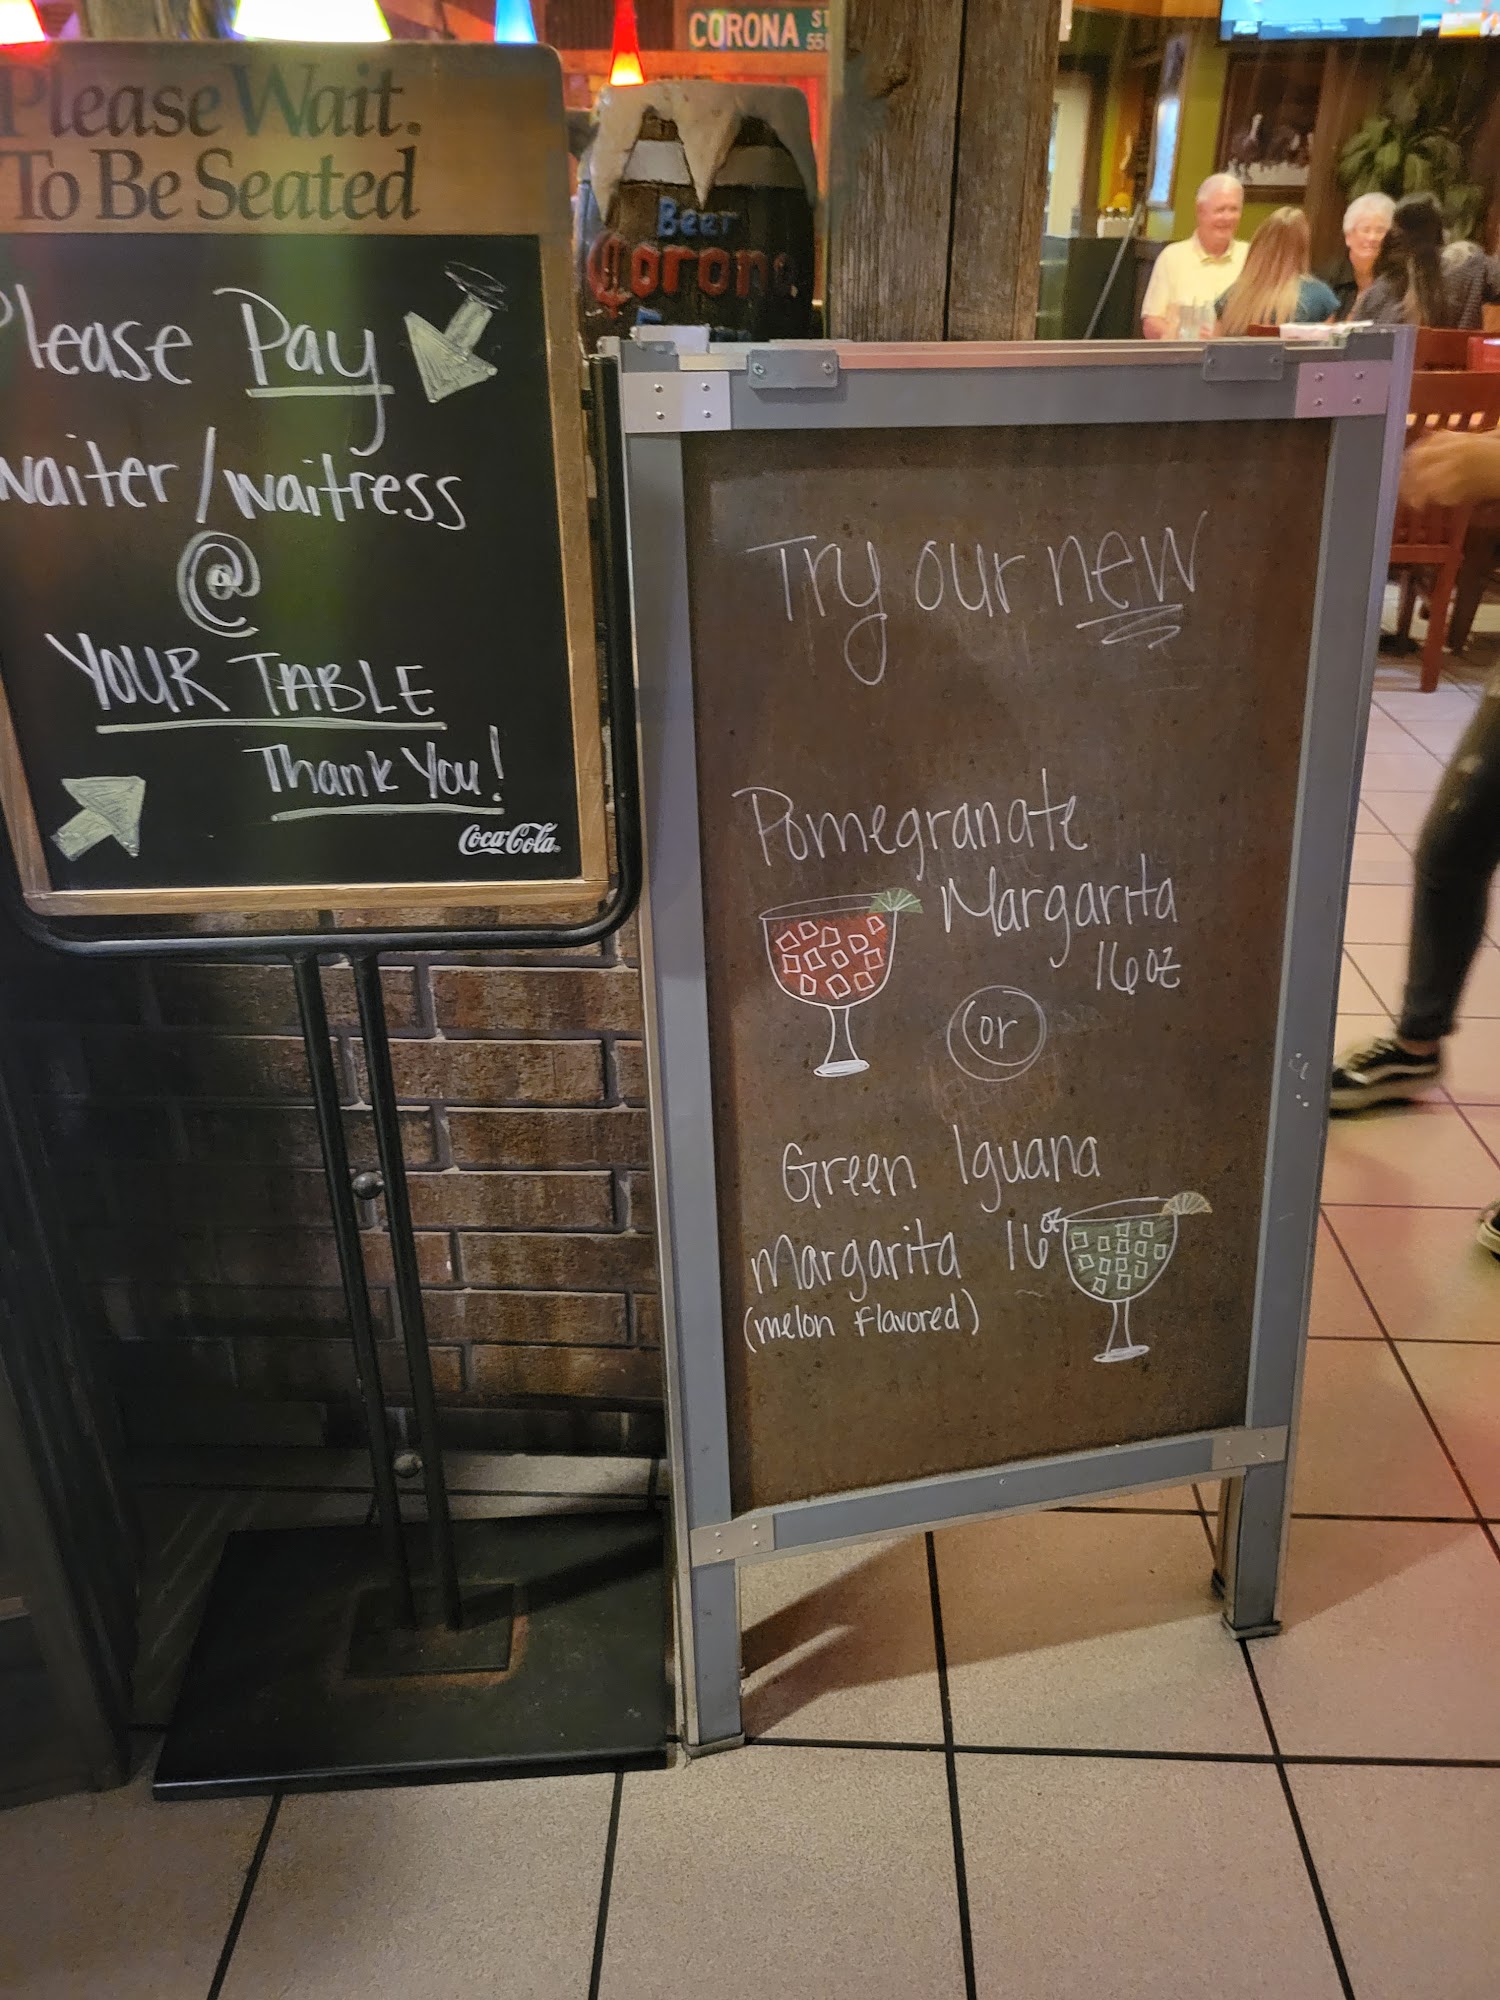 Please Wait.
To Be Seated
Please Pay
waiter/waitress
@
YOUR TABLE
Thank You!
Coca-Cola
CORONA ST
55
Beer
Corona
Try our new
Pomegranate
Margarita
16 oz
or
Green Iguana
Margarita 16 oz
(melon flavored)